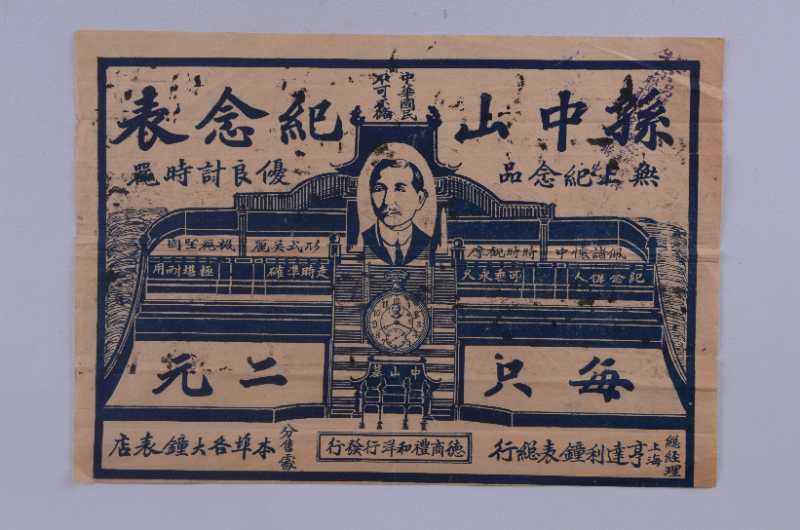 中華國民
不可
孫中山 紀念表
無上紀念品 優良計時器
佩諸懷中 時時觀摩 形式美麗 堅固
紀念偉人 可垂永久 走時準確 極堪耐用
中山墓
每只 二元
總經理
上海
亨達利鐘表總行
德商禮和洋行發行
分售處
本埠各大鐘表店